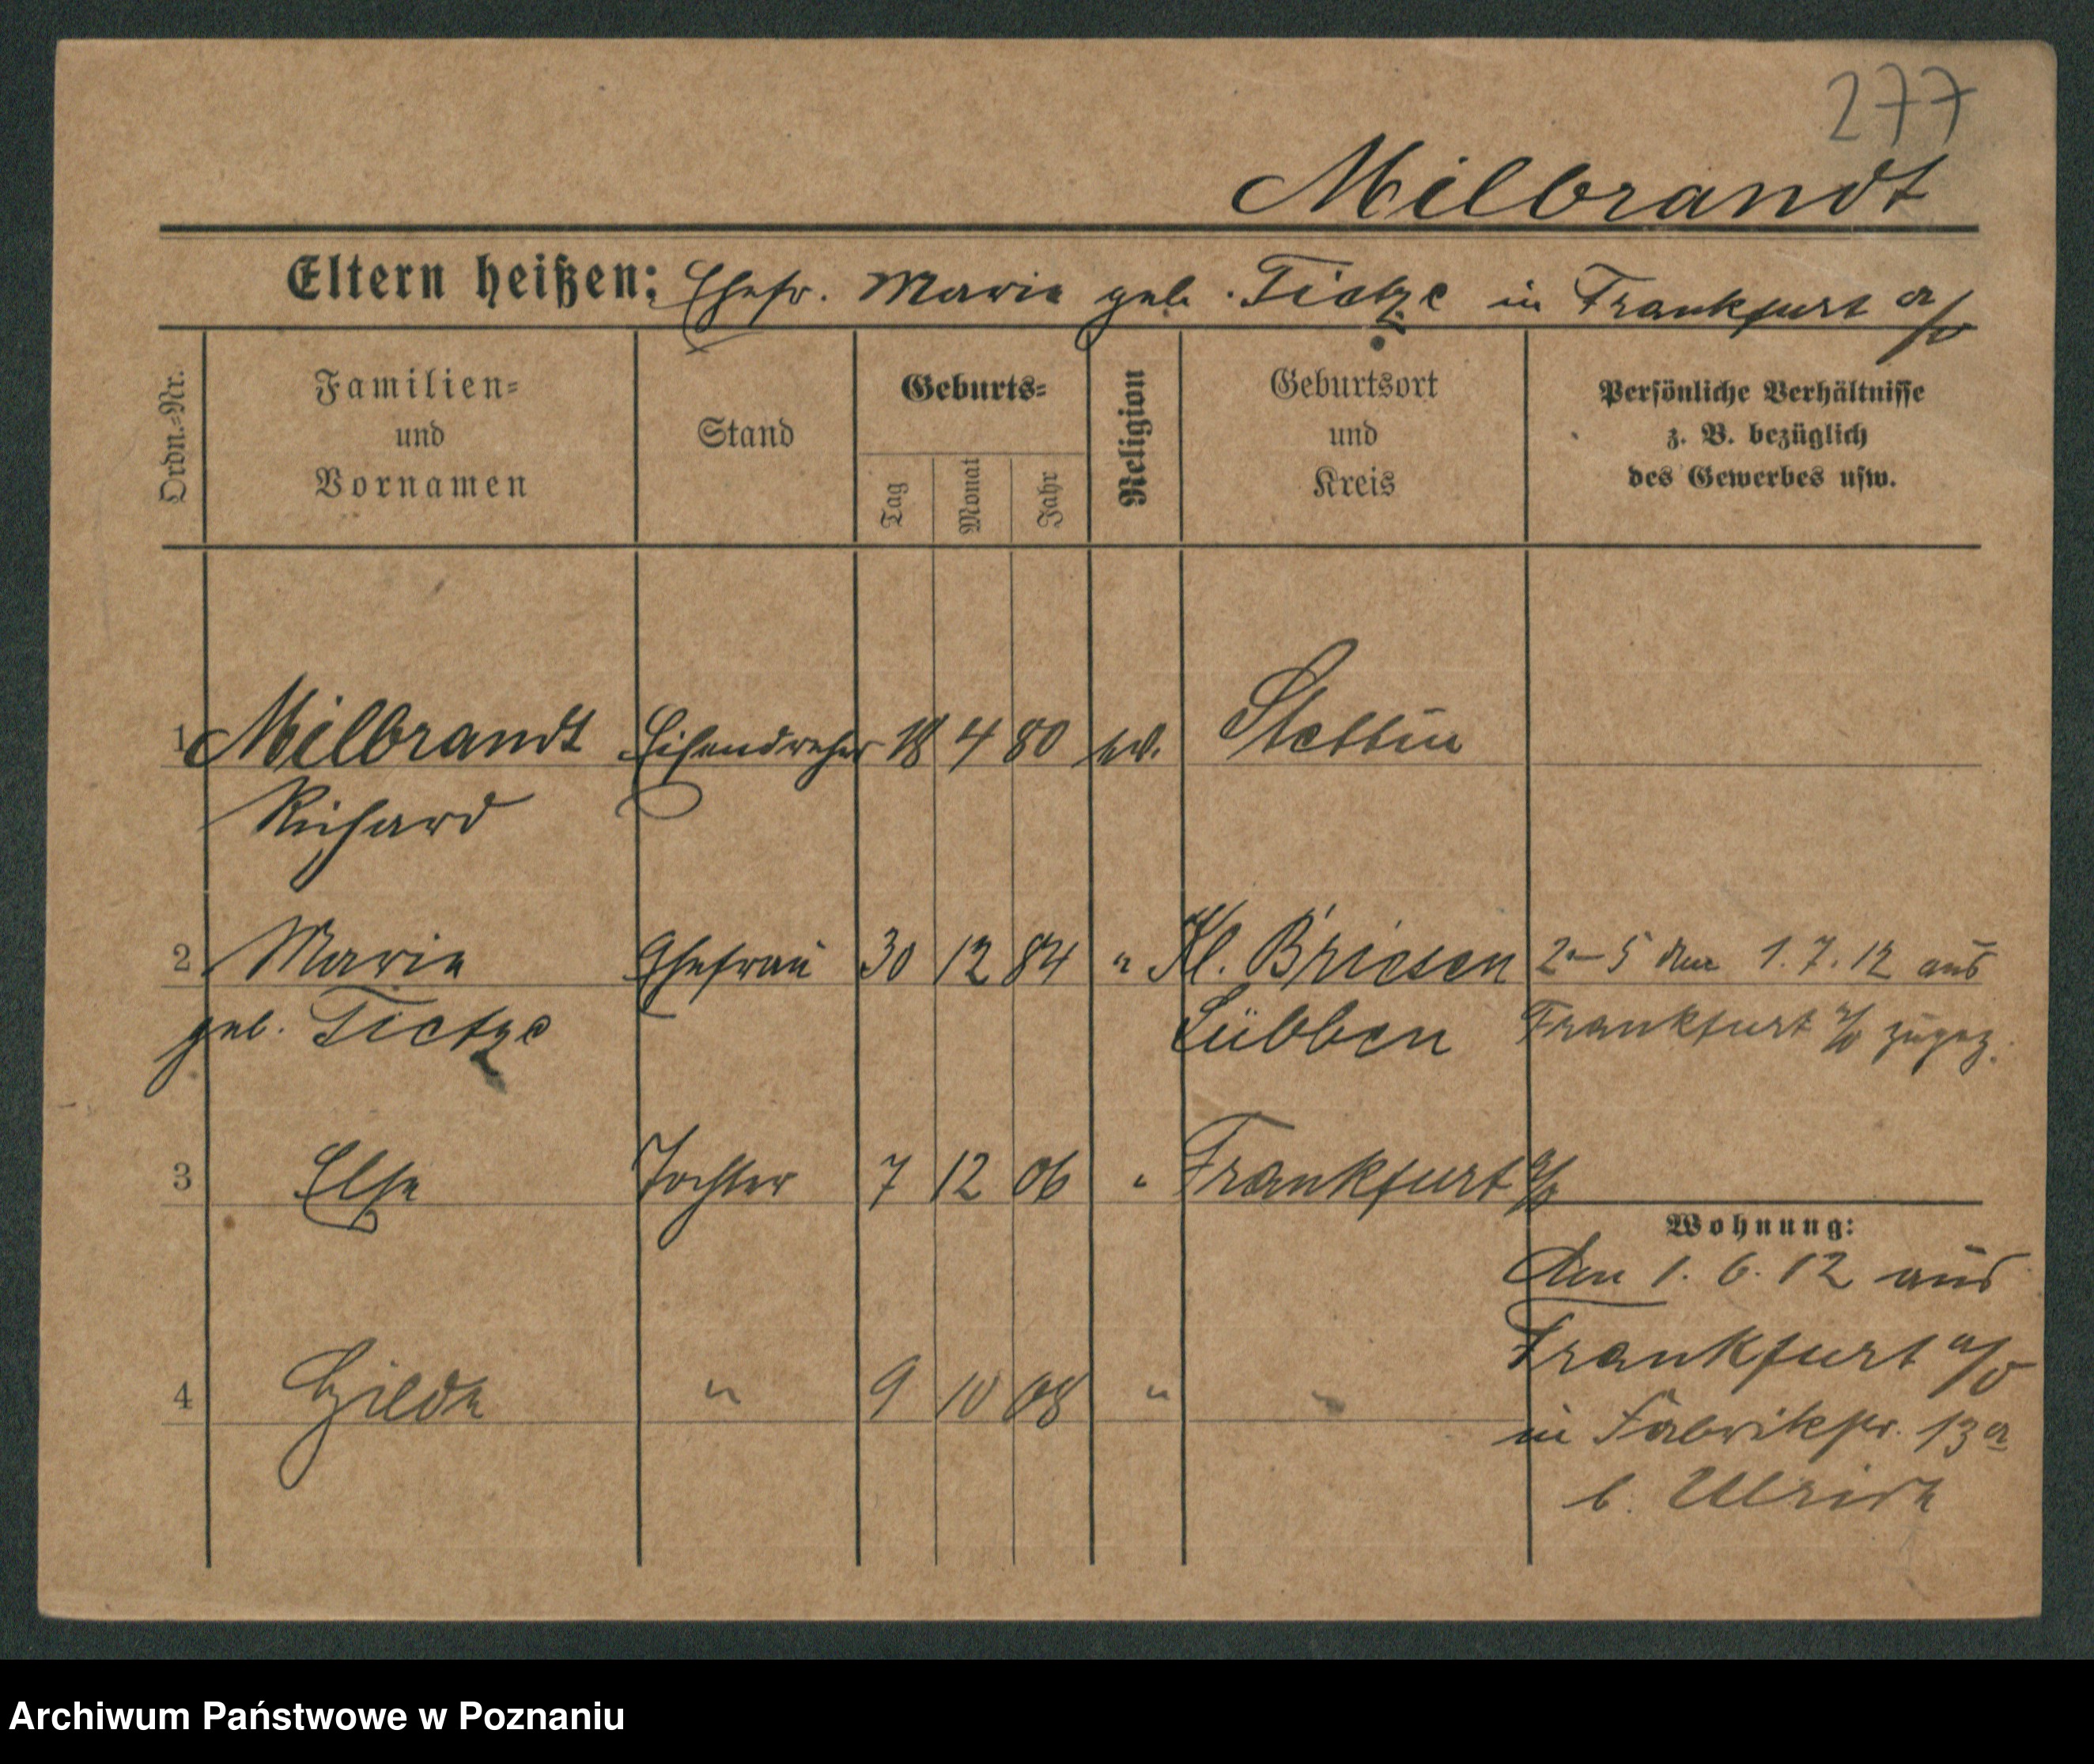 277
Milbrandt
Eltern heißen: Ehefr. Marie geb. Tietze in Frankfurt a/O
Ordn.=Nr.
Familien=
und
Vornamen
Stand
Geburts=
Tag
Monat
Jahr
Religion
Geburtsort
und
Kreis
Persönliche Verhältnisse
z. B. bezüglich
des Gewerbes usw.
1 Milbrandt Eisendreher 18 4 80 ev. Stettin
Richard
2 Marie Ehefrau 30 12 84 " Kl. Briesen 2–5 den 1.7.12 aus
geb. Tietze Lübben Frankfurt a/O zugez.
3 Else Tochter 7 12 06 " Frankfurt a/O
Wohnung:
den 1. 6. 12 aus
Frankfurt a/O
4 Hilde " 9 10 08 " "
in Fabrikstr. 13a
b. Ulrich
Archiwum Państwowe w Poznaniu